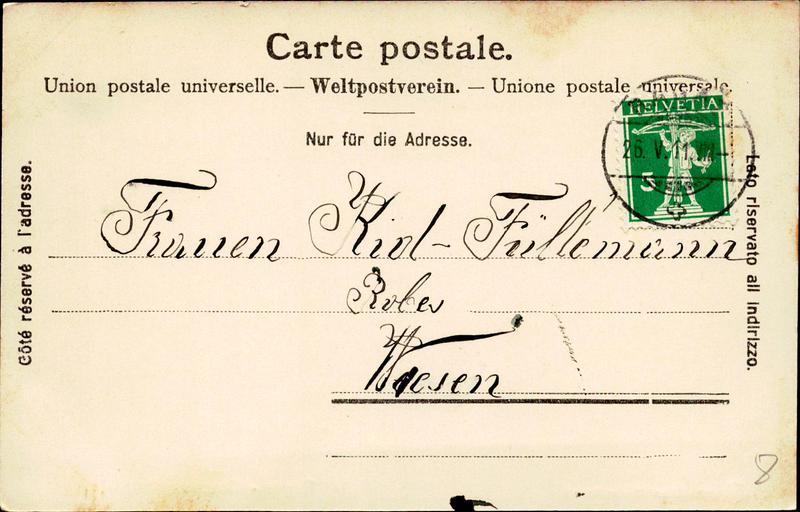 Carte postale.
Union postale universelle. — Weltpostverein. — Unione postale universale.
Nur für die Adresse.
HELVETIA
26. V. 11
5
Côté réservé à l'adresse.
Lato riservato all indirizzo.
Frauen Kiol-Füllemann
Robes
Weesen
8